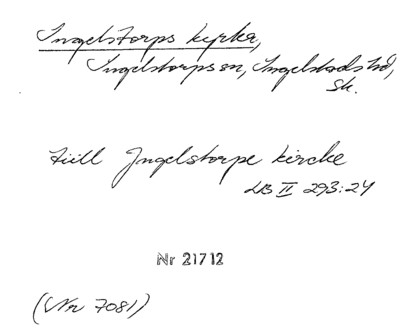 Ingelstorps kyrka,
Ingelstorps sn, Ingelstads hd,
Sk.
tiill Ingelstorpe kircke
LB II 293:24
Nr 21712
(Nr 7081)